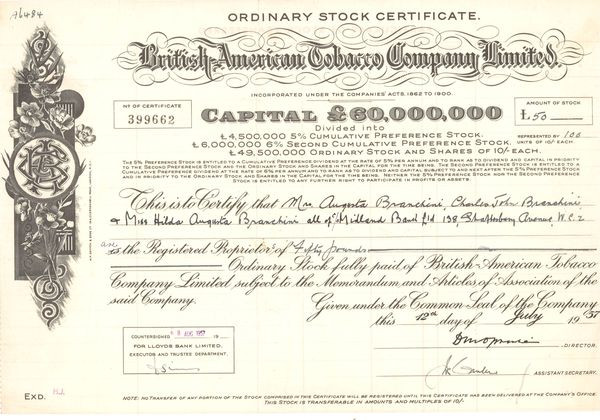 A6484
ORDINARY STOCK CERTIFICATE.
British-American Tobacco Company Limited.
INCORPORATED UNDER THE COMPANIES' ACTS, 1862 TO 1900.
Nº OF CERTIFICATE
399662
CAPITAL £60,000,000
AMOUNT OF STOCK
£50
Divided into
£4,500,000 5% Cumulative Preference Stock.
£6,000,000 6% Second Cumulative Preference Stock.
£49,500,000 Ordinary Stock and Shares of 10/- each.
REPRESENTED BY 100
UNITS OF 10/- EACH
THE 5% PREFERENCE STOCK IS ENTITLED TO A CUMULATIVE PREFERENCE DIVIDEND AT THE RATE OF 5% PER ANNUM AND TO RANK AS TO DIVIDEND AND CAPITAL IN PRIORITY
TO THE SECOND PREFERENCE STOCK AND THE ORDINARY STOCK AND SHARES IN THE CAPITAL FOR THE TIME BEING. THE SECOND PREFERENCE STOCK IS ENTITLED TO A
CUMULATIVE PREFERENCE DIVIDEND AT THE RATE OF 6% PER ANNUM AND TO RANK AS TO DIVIDEND AND CAPITAL SUBJECT TO AND NEXT AFTER THE 5% PREFERENCE STOCK
AND IN PRIORITY TO THE ORDINARY STOCK AND SHARES IN THE CAPITAL FOR THE TIME BEING. NEITHER THE 5% PREFERENCE STOCK NOR THE SECOND PREFERENCE
STOCK IS ENTITLED TO ANY FURTHER RIGHT TO PARTICIPATE IN PROFITS OR ASSETS.
This is to Certify that Mrs Augusta Branchini, Charles John Branchini
& Miss Hilda Augusta Branchini all of Midland Bank Ltd 138, Shaftesbury Avenue, W.C.2
are
is the Registered Proprietors of Fifty pounds
Ordinary Stock fully paid of British-American Tobacco
Company Limited subject to the Memorandum and Articles of Association of the
said Company.
Given under the Common Seal of the Company
this 12th day of July 1957
COUNTERSIGNED 8 AUG 1957 19
FOR LLOYDS BANK LIMITED.
EXECUTOR AND TRUSTEE DEPARTMENT.
DIRECTOR.
ASSISTANT SECRETARY.
EXD.
NOTE: NO TRANSFER OF ANY PORTION OF THE STOCK COMPRISED IN THIS CERTIFICATE WILL BE REGISTERED UNTIL THIS CERTIFICATE HAS BEEN DELIVERED AT THE COMPANY'S OFFICE.
THIS STOCK IS TRANSFERABLE IN AMOUNTS AND MULTIPLES OF 10/-